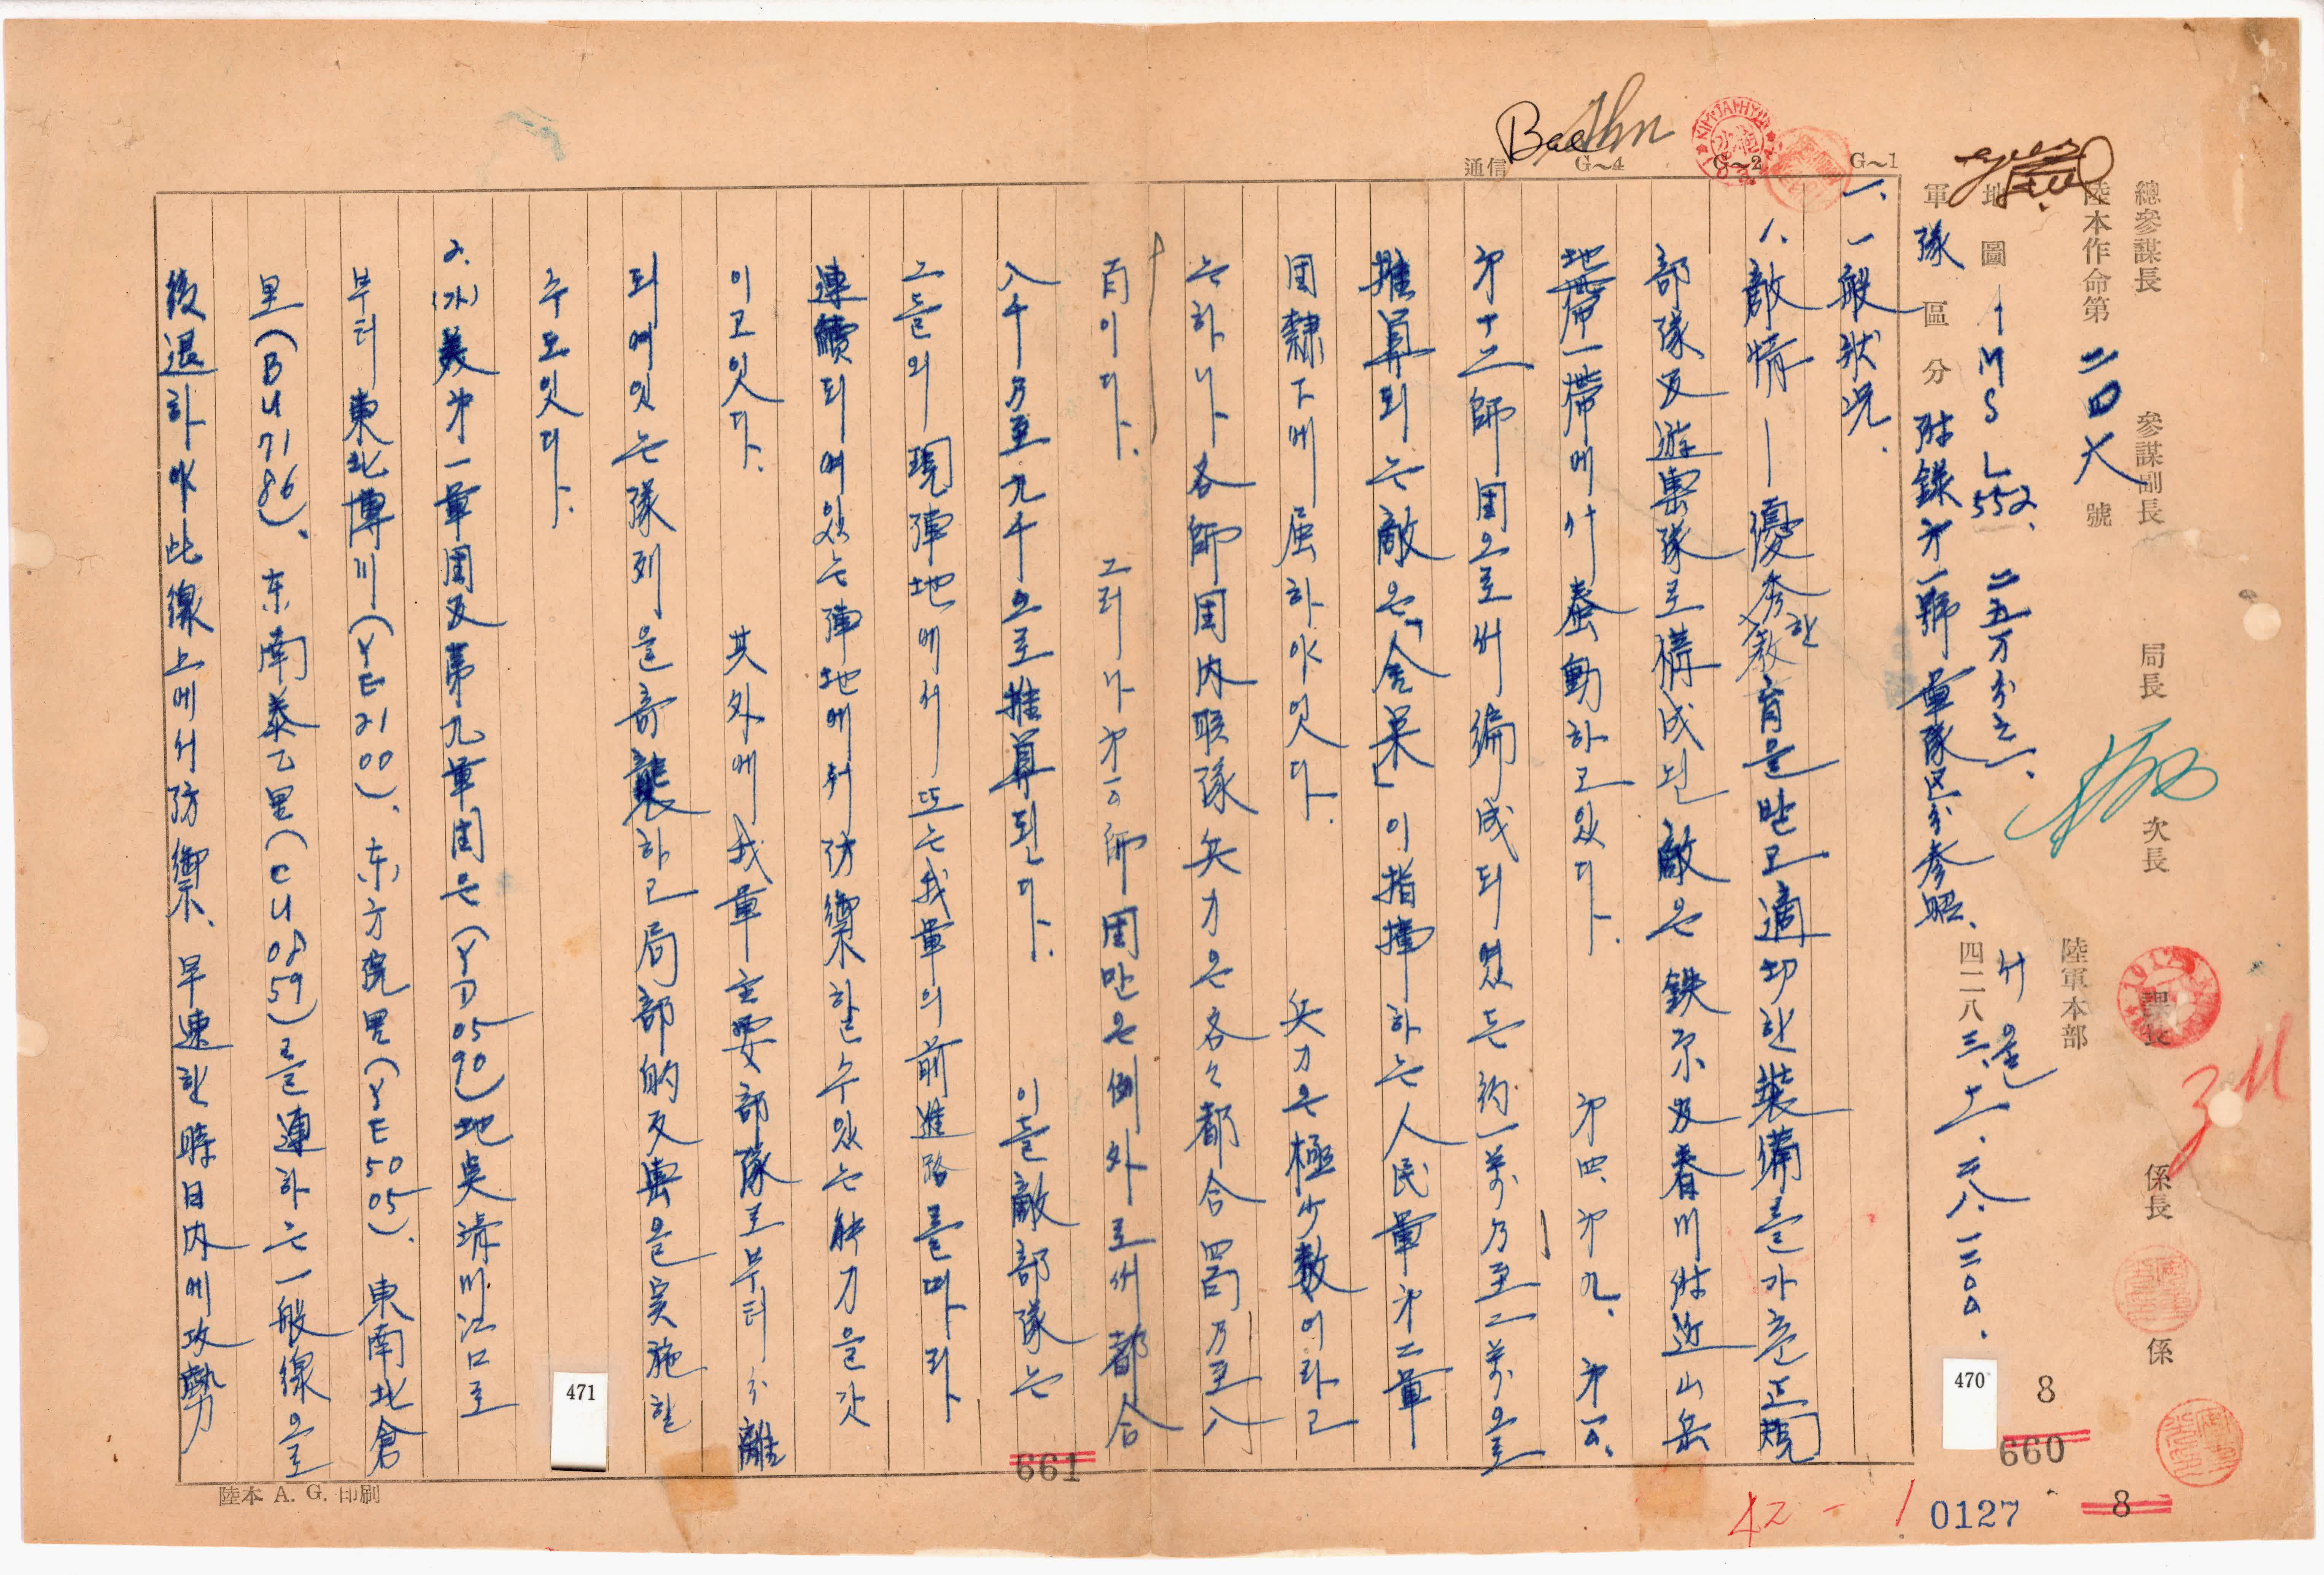 總參謀長 參謀副長 局長 次長 課長 係長 係
陸本作命第 二四六 號 陸軍本部
地圖 AMS L552. 二五万分之一. 서울
四二八三. 十一. 二八. 一二00.
軍隊區分 附錄才一號 軍隊区分参照.
通信 G~4 G~2 G~1
Bae
KIM JAI HYUN
一. 一般狀况.
1. 敵情 — 優秀한 敎育을 받고 適切한 裝備를 가춘 正規
部隊及遊擊隊로 構成된 敵은 鉄原及春川附近山岳
地帶一帶에서 蠢動하고있다. 才四. 才九. 才一0.
才十二師団으로서 編成되였든 約一萬乃至二萬으로
推算되는 敵은 「金策」이 指揮하는 人民軍才二軍
団隷下에 屈하얏다. 兵力은 極少數이라고
는하나 各師団内聯隊兵力은 各々都合四百乃至八
百이다. 그러나 才一0師団만은 例外로서 都合
八千乃至九千으로 推算된다. 이들敵部隊는
그들의 現陣地에서 또는 我軍의 前進路를 따라
連續되여있는 陣地에서 防禦할수있는 能力을갓
이고잇다. 其外에 我軍主要部隊로부터 分離
되여잇는 隊列을 奇襲하고 局部的反擊을 実施할
수도잇다.
2. (가) 美才一軍団及第九軍団은 (YD0590) 地点 淸川江口로
부터 東北博川 (YE2100). 东方院里 (YE5005). 東南北倉
里 (BU7186). 东南泰乙里 (CU0859)를 連하는 一般線으로
後退하야 此線上에서 防禦. 早速한 時日内에 攻勢
471
470
8
660
661
8
0127
42-1
陸本 A. G. 印刷